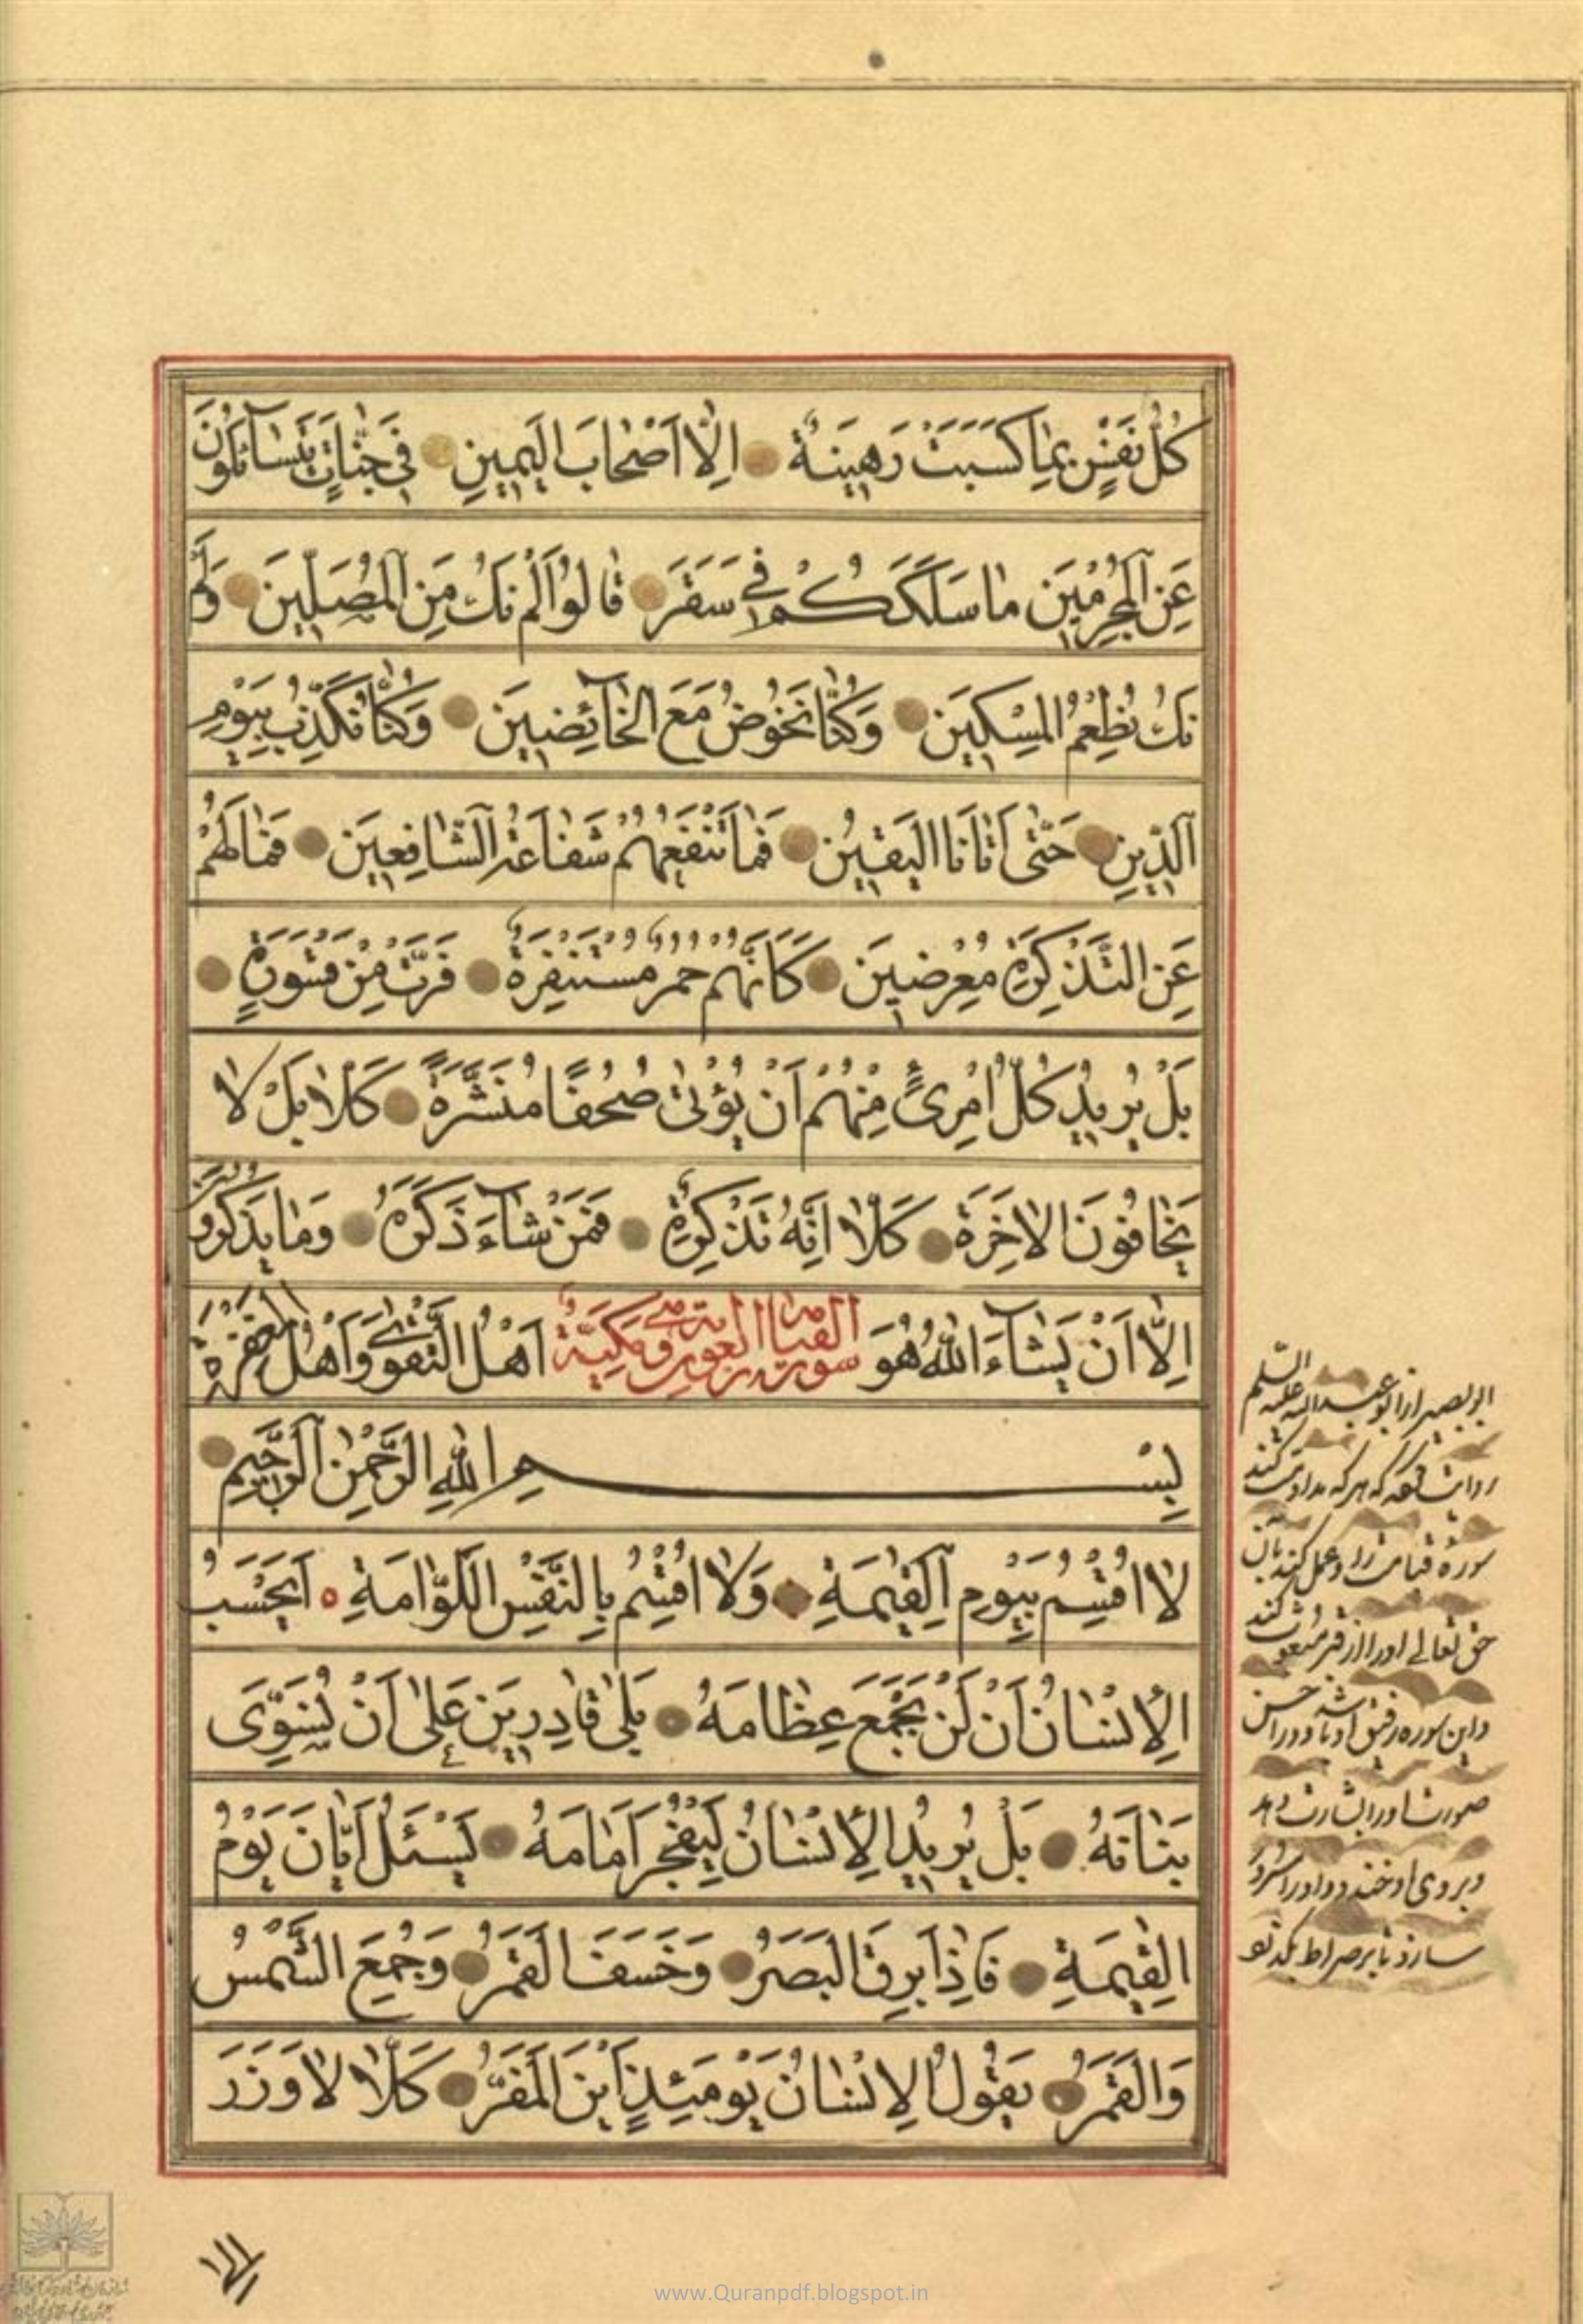 كُلُّ نَفْسٍ بِمٰا كَسَبَتْ رَهِينَةٌ اِلّٰا اَصْحٰابَ الْيَمِينِ فِي جَنّٰاتٍ يَتَسٰائَلُونَ
عَنِ الْمُجْرِمِينَ مٰا سَلَكَكُمْ فِي سَقَرَ قٰالُوا لَمْ نَكُ مِنَ الْمُصَلِّينَ وَلَمْ
نَكُ نُطْعِمُ الْمِسْكِينَ وَكُنّٰا نَخُوضُ مَعَ الْخٰائِضِينَ وَكُنّٰا نُكَذِّبُ بِيَوْمِ
الدِّينِ حَتّٰى اَتٰانَا الْيَقِينُ فَمٰا تَنْفَعُهُمْ شَفٰاعَةُ الشّٰافِعِينَ فَمٰا لَهُمْ
عَنِ التَّذْكِرَةِ مُعْرِضِينَ كَاَنَّهُمْ حُمُرٌ مُسْتَنْفِرَةٌ فَرَّتْ مِنْ قَسْوَرَةٍ
بَلْ يُرِيدُ كُلُّ امْرِئٍ مِنْهُمْ اَنْ يُؤْتٰى صُحُفًا مُنَشَّرَةً كَلّٰا بَلْ لٰا
يَخٰافُونَ الْاٰخِرَةَ كَلّٰا اِنَّهُ تَذْكِرَةٌ فَمَنْ شٰاءَ ذَكَرَهُ وَمٰا يَذْكُرُونَ
اِلّٰا اَنْ يَشٰاءَ اللّٰهُ هُوَ اَهْلُ التَّقْوٰى وَاَهْلُ الْمَغْفِرَةِ
سورة القيامة مكيّة
بِسْمِ اللّٰهِ الرَّحْمٰنِ الرَّحِيمِ
لٰا اُقْسِمُ بِيَوْمِ الْقِيٰمَةِ وَلٰا اُقْسِمُ بِالنَّفْسِ اللَّوّٰامَةِ اَيَحْسَبُ
الْاِنْسٰانُ اَنْ لَنْ نَجْمَعَ عِظٰامَهُ بَلٰى قٰادِرِينَ عَلٰى اَنْ نُسَوِّىَ
بَنٰانَهُ بَلْ يُرِيدُ الْاِنْسٰانُ لِيَفْجُرَ اَمٰامَهُ يَسْئَلُ اَيّٰانَ يَوْمُ
الْقِيٰمَةِ فَاِذٰا بَرِقَ الْبَصَرُ وَخَسَفَ الْقَمَرُ وَجُمِعَ الشَّمْسُ
وَالْقَمَرُ يَقُولُ الْاِنْسٰانُ يَوْمَئِذٍ اَيْنَ الْمَفَرُّ كَلّٰا لٰا وَزَرَ
ابو بصير از ابو عبد الله عليه السلم
روايت كه هر كه مداومت كند
سوره قيامت را و عمل كند بان
حق تعالى او را از قبر مبعوث كند
و اين سوره رفيق او باشد و در احسن
صورت او را بشارت دهد
و بر روى او خندد و او را مسرور
سازد تا بر صراط بگذرد
www.Quranpdf.blogspot.in